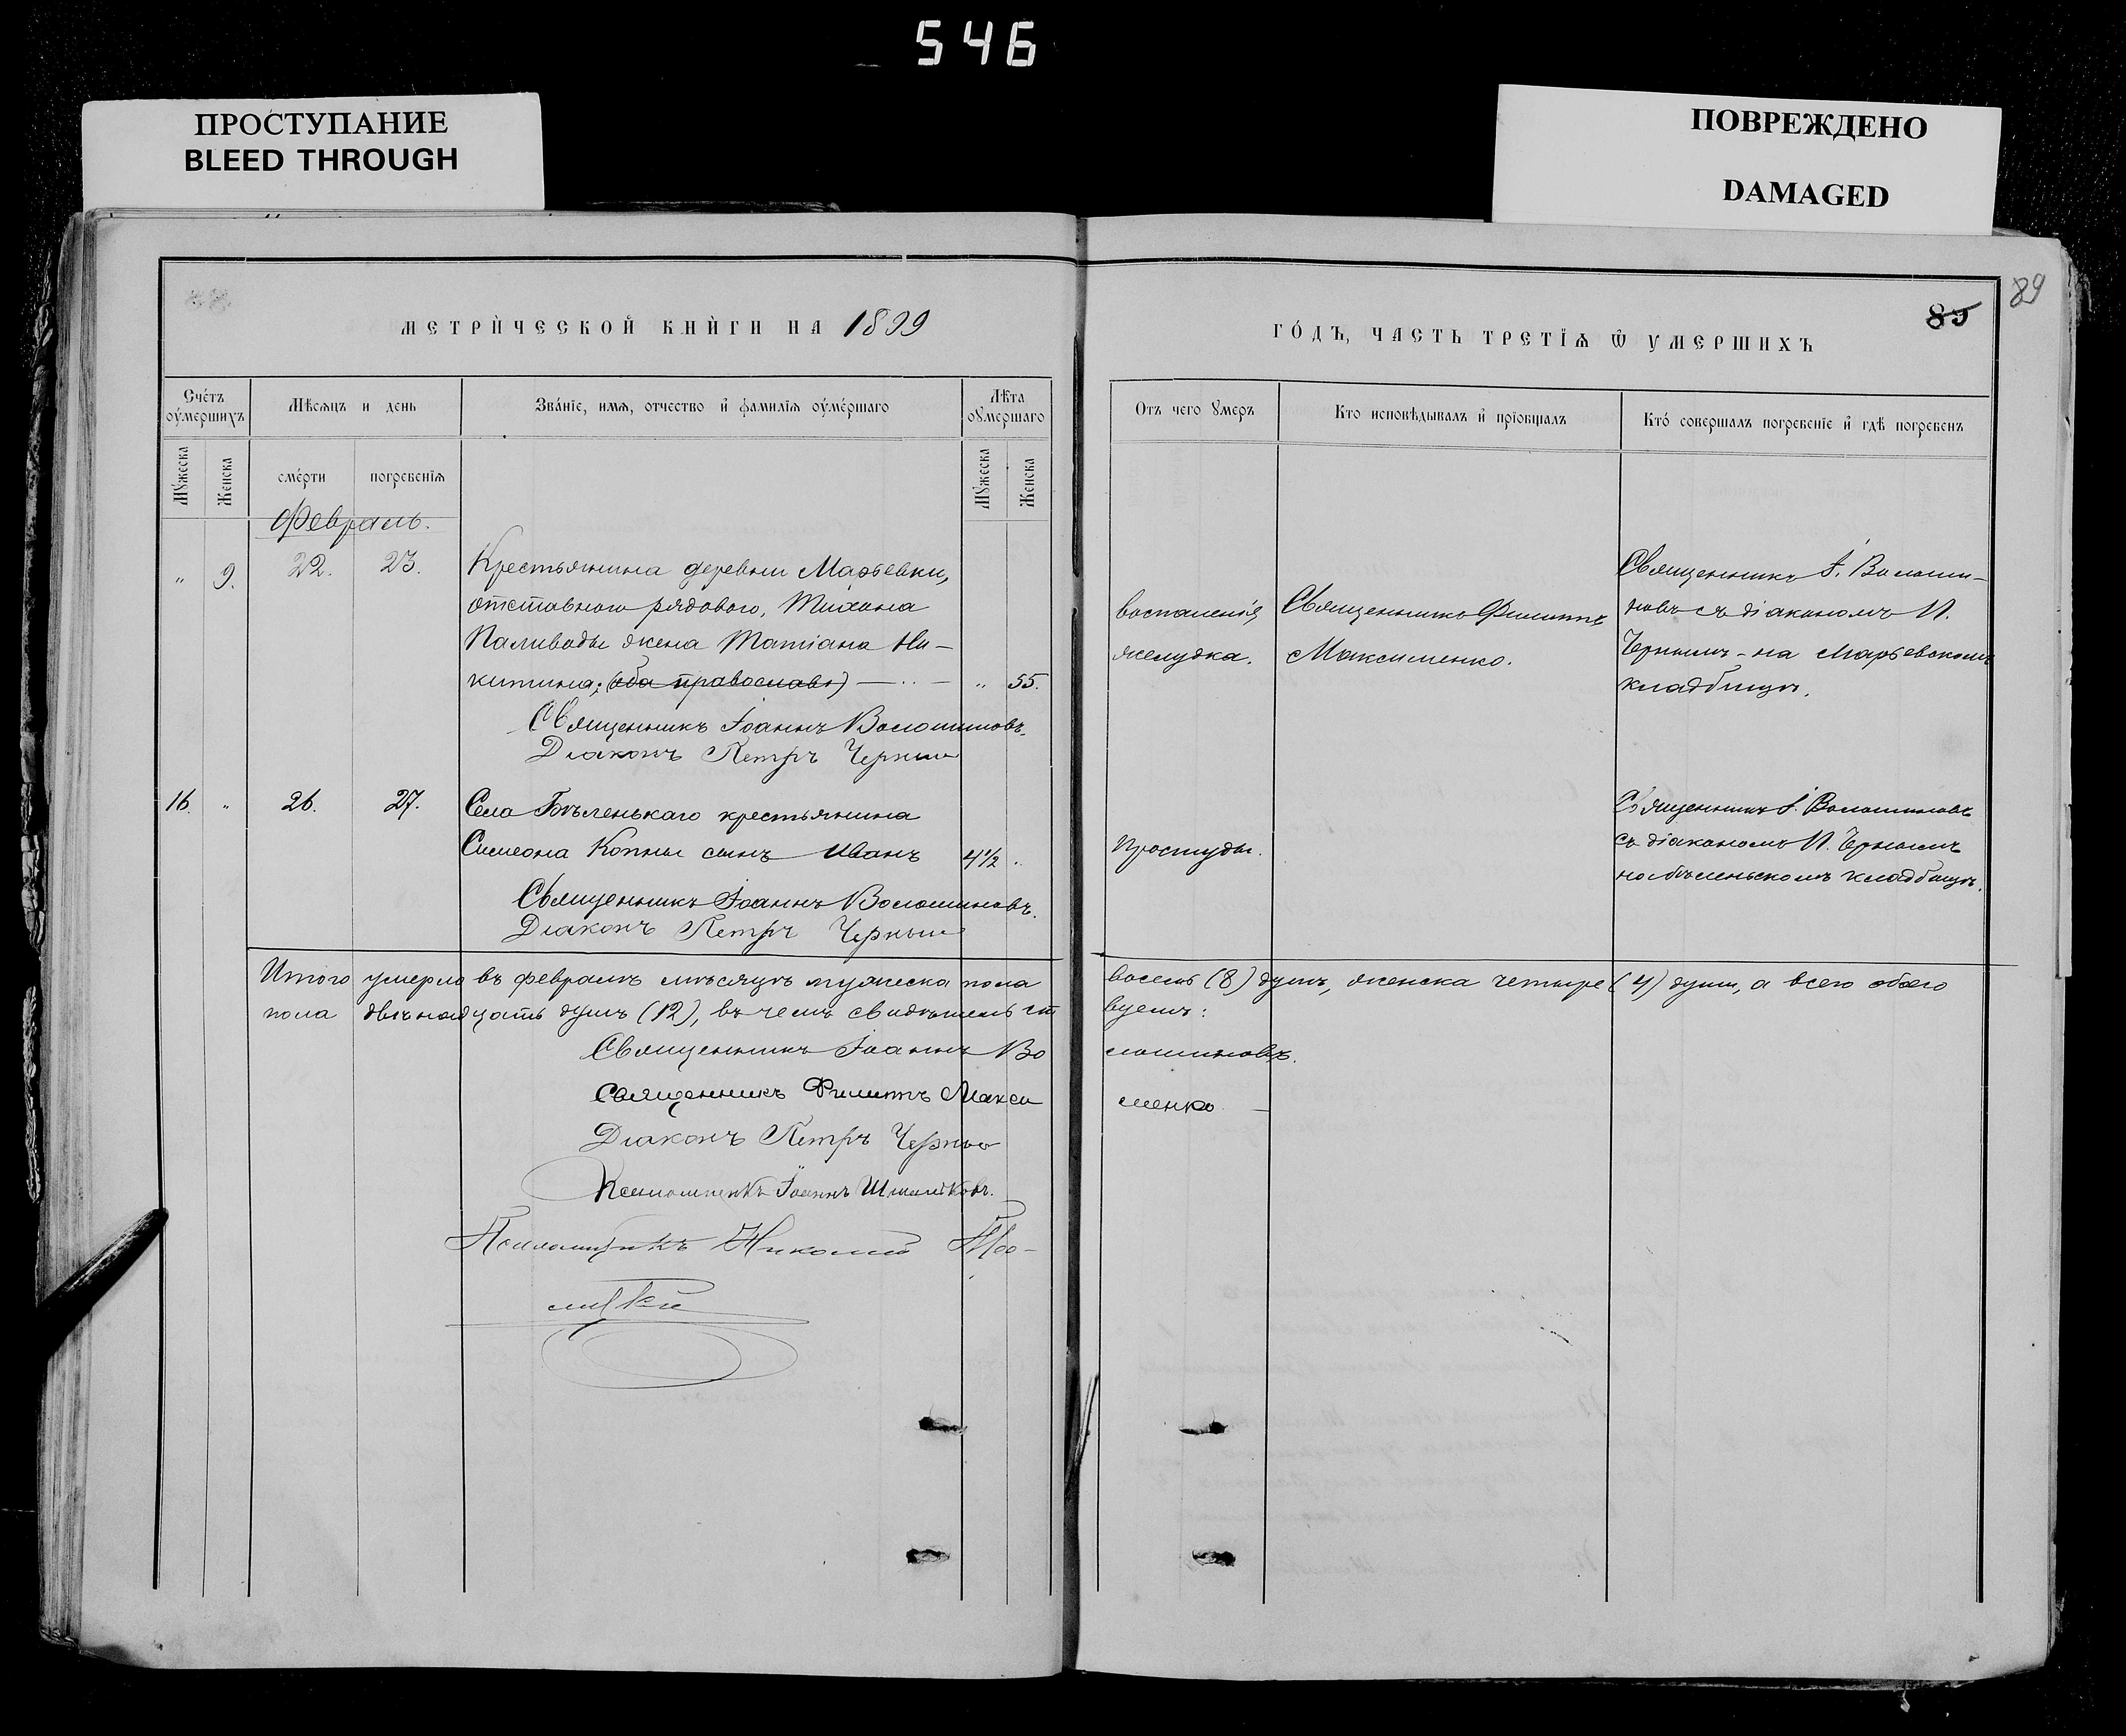 546
ПРОСТУПАНИЕ
BLEED THROUGH
ПОВРЕЖДЕНО
DAMAGED
89
85
МЕТРИЧЕСКОЙ КНИГИ НА 1899
ГОДЪ, ЧАСТЬ ТРЕТІѦ Ѡ УМЕРШИХЪ
Счетъ оумершихъ
Мѣсяцъ и день
Званіе, имя, отчество и фамилія оумершаго
Лѣта оумершаго
Отъ чего умеръ
Кто исповѣдывалъ и пріобщалъ
Кто совершалъ погребеніе и гдѣ погребенъ
Мужеска
Женска
смерти
погребенія
Мужеска
Женска
Февраль.
" 9. 22. 23. Крестьянина деревни Марьевки,
отставного рядового, Тихона
Паливоды жена Татіана Ни-
китина; (оба православ.) — " — " 55.
Священникъ Іоаннъ Волошиновъ.
Діаконъ Петръ Черный
воспаленія
желудка.
Священникъ Филиппъ
Максименко.
Священникъ І. Волоши-
новъ съ діакономъ П.
Чернымъ - на Марьевскомъ
кладбищѣ.
16. " 26. 27. Села Бѣленькаго крестьянина
Симеона Копны сынъ Иванъ 4½ .
Священникъ Іоаннъ Волошиновъ.
Діаконъ Петръ Черный
простуды.
Священникъ І. Волошиновъ
съ діакономъ П. Чернымъ
на бѣленьскомъ кладбищѣ.
Итого умерло въ февралѣ мѣсяцѣ мужеска пола восемь (8) душъ, женска четыре (4) души, а всего обоего
пола двѣнадцать душъ (12), въ чемъ свидѣтельствуемъ:
Священникъ Іоаннъ Волошиновъ.
Священникъ Филиппъ Максименко —
Діаконъ Петръ Черный
Псаломщикъ Іоаннъ
Псаломщикъ Николай